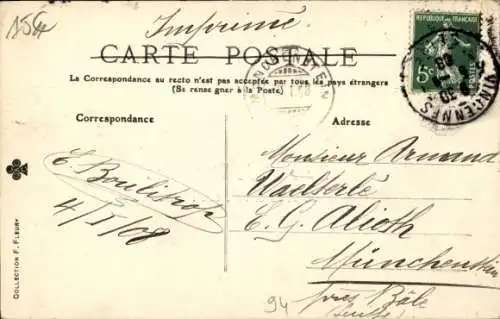 Imprimé
CARTE POSTALE
La Correspondance au recto n'est pas acceptée par tous les pays étrangers
(Se renseigner à la Poste)
Correspondance
Adresse
REPUBLIQUE FRANCAISE
5c
MÜNCHENSTEIN
Monsieur Armand
Waelterlé
E. G. Alioth
Münchenstein
près Bâle
(Suisse)
4/I/08
94
COLLECTION F. FLEURY